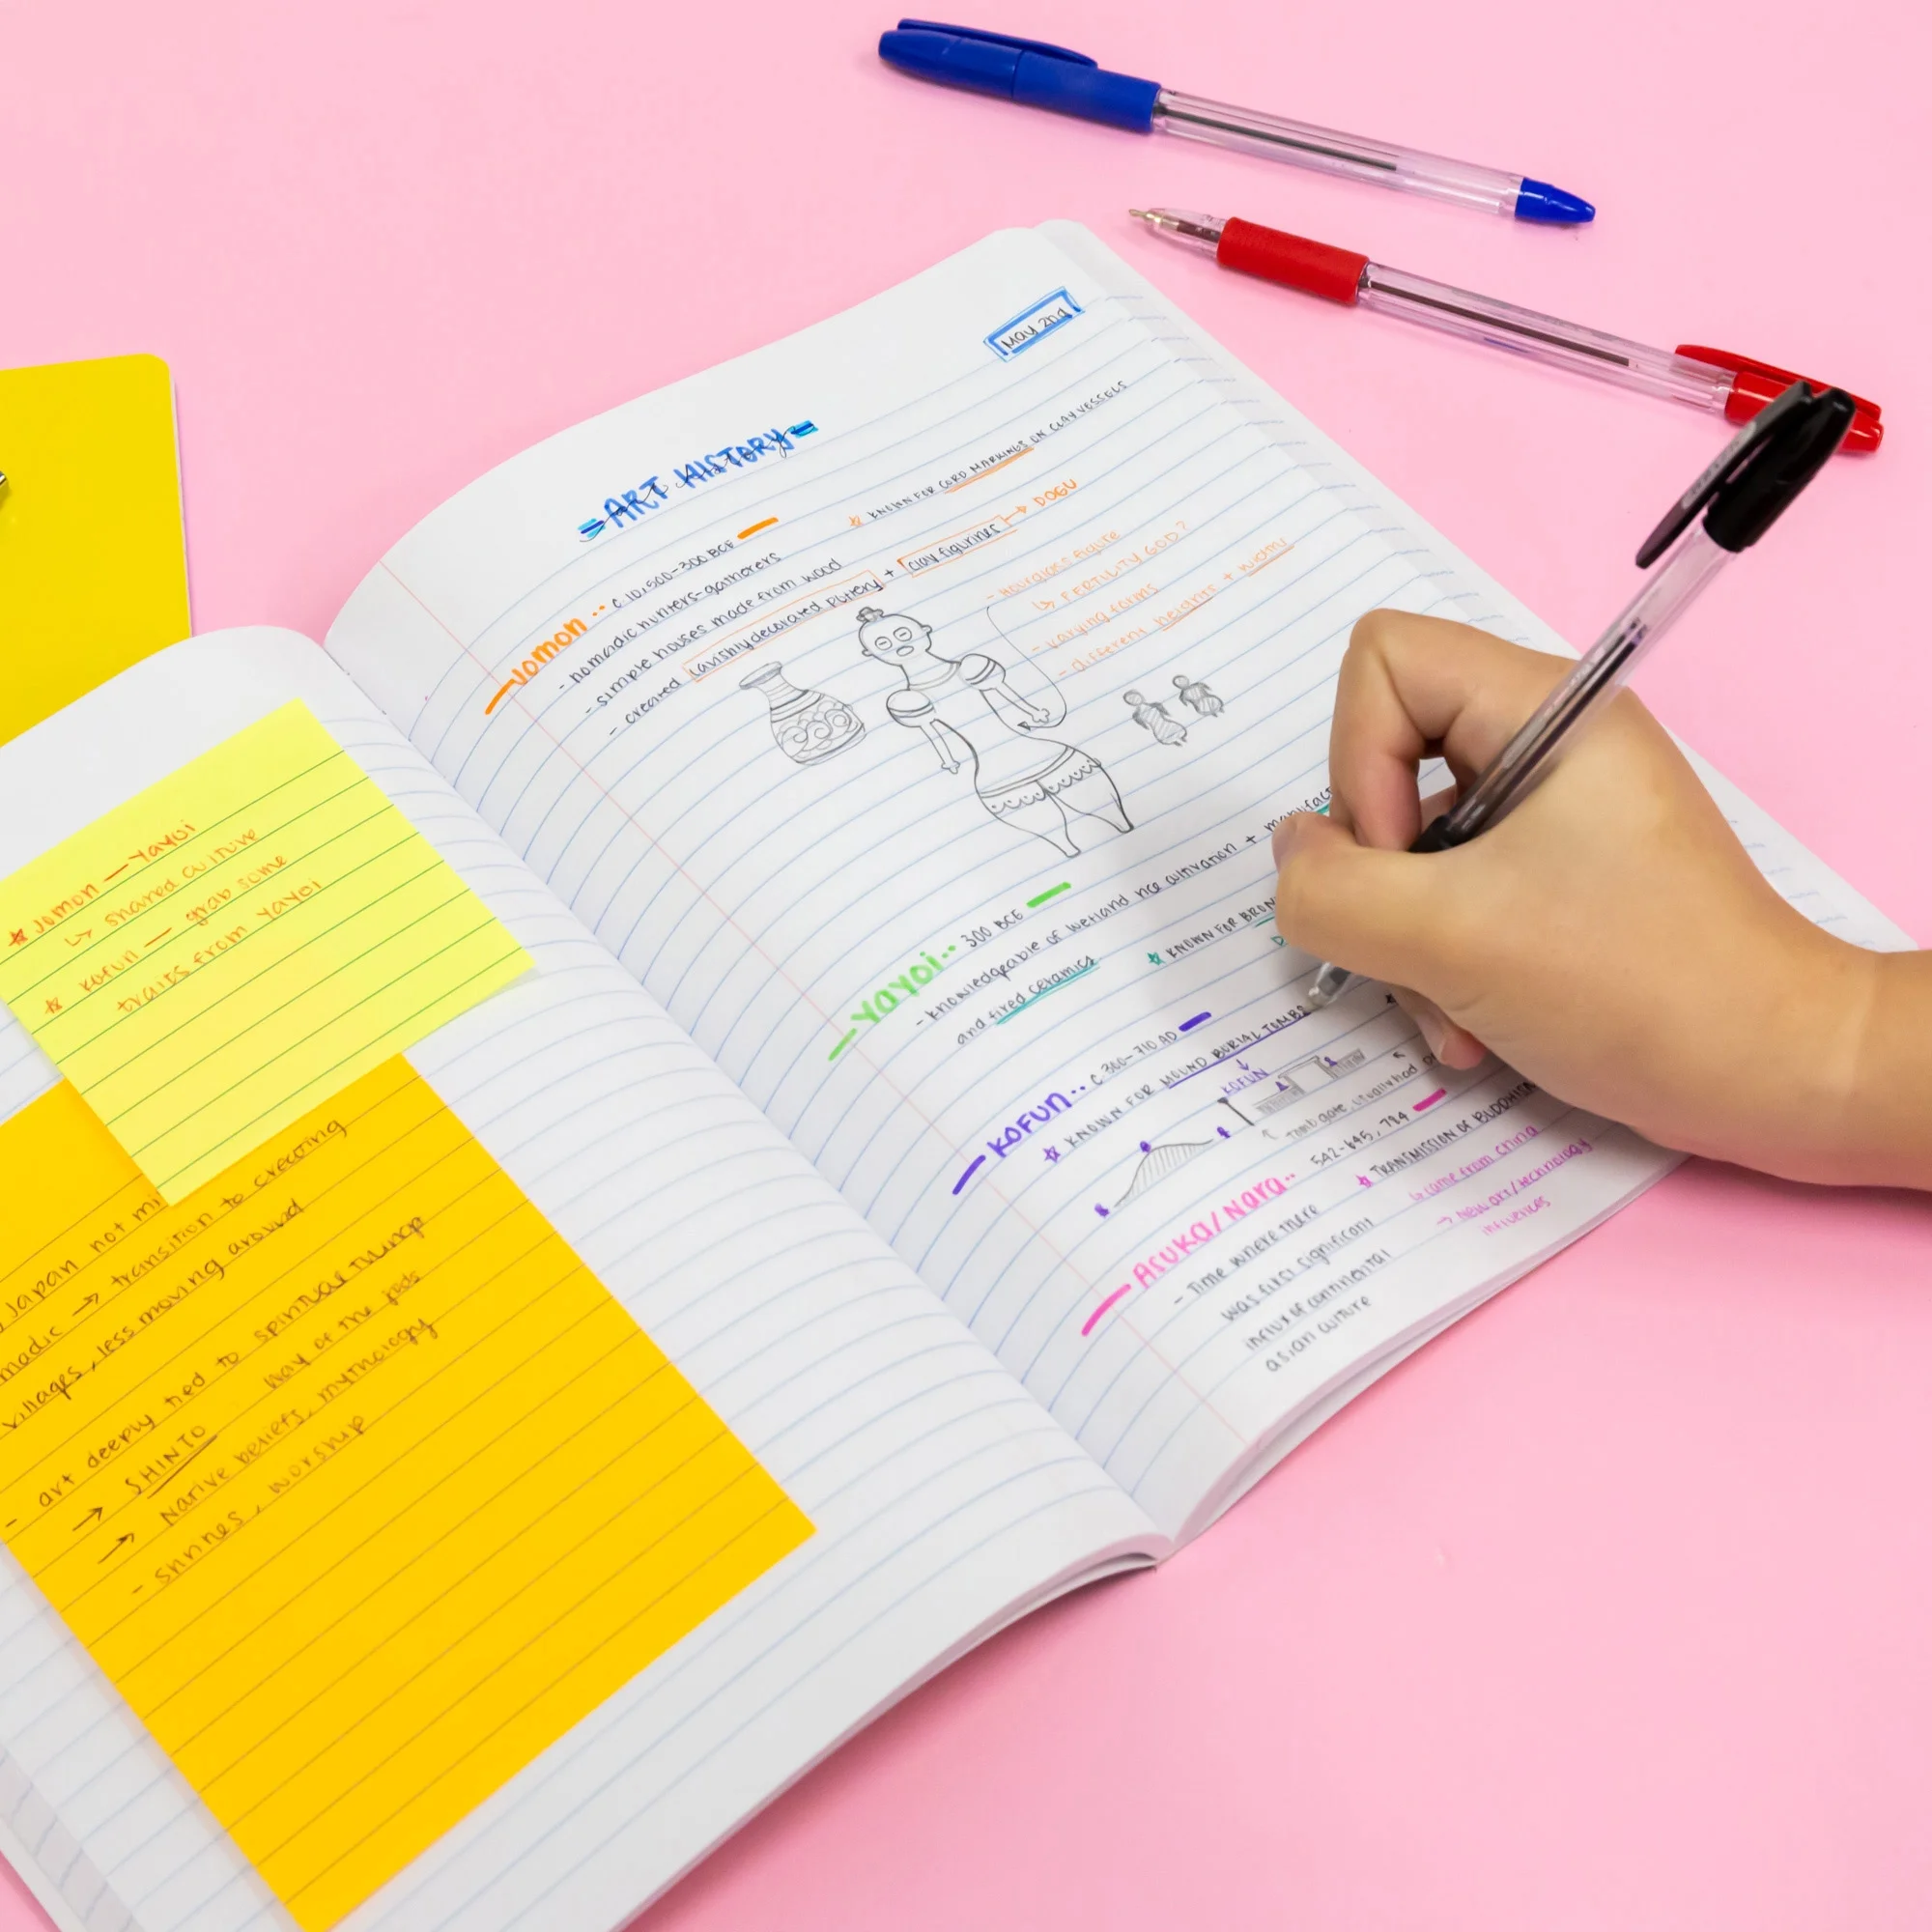 Jomon — Yayoi
↳ shared culture
Kofun — grab some
traits from Yayoi
Japan not mi
madic → transition to creating
villages, less moving around
- art deeply tied to spiritual things
→ SHINTO way of the gods
→ Native beliefs, mythology
- shrines, worship
May 2nd
ART HISTORY
Jomon.. c 10,500-300 BCE
KNOWN FOR CORD MARKINGS ON CLAY VESSELS
- nomadic hunters-gatherers
- simple houses made from wood
- created lavishly decorated pottery + clay figurines → DOGU
- Hourglass figure
↳ FERTILITY GOD?
- varying forms
- different heights + widths
Yayoi.. 300 BCE
- knowledgeable of wetland rice cultivation + manufact
and fired ceramics
KNOWN FOR BRON
KOFUN.. c 300-710 AD
KNOWN FOR MOUND BURIAL TOMBS
↓
KOFUN
Tomb gate, situated on
ASUKA/Nara.. 542-645, 784
- Time where there
was first significant
influx of continental
asian culture
TRANSMISSION OF BUDDHISM
↳ came from China
→ new art/technology
influences